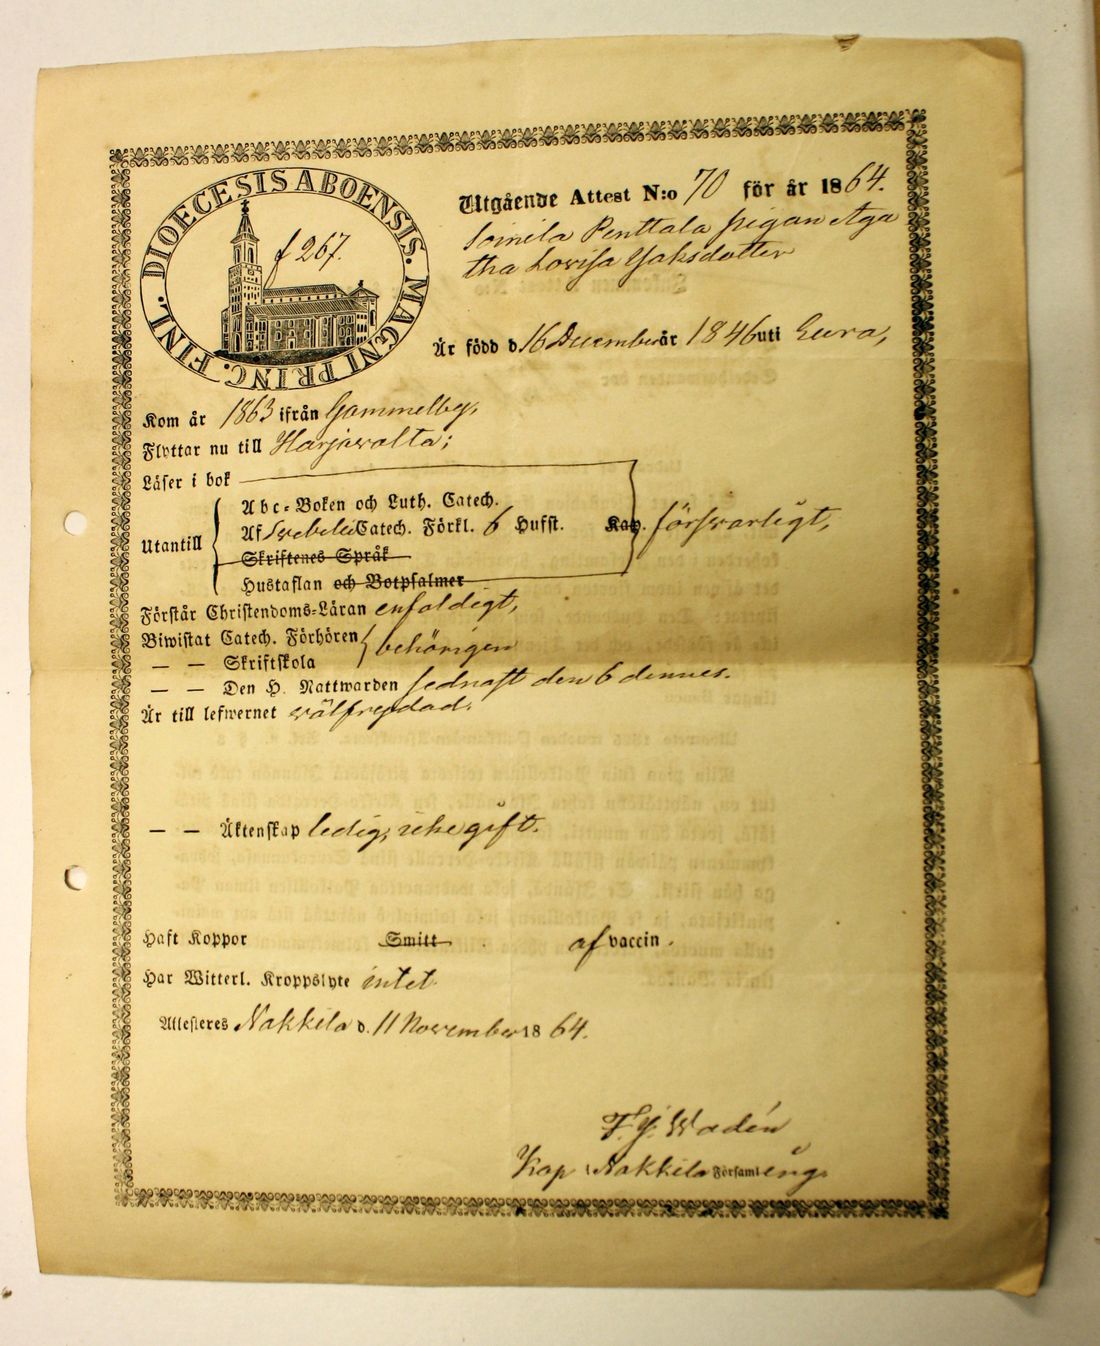 DIOECESIS ABOENSIS. MAGNI PRINC. FINL.
f 267.
Utgående Attest N:o 70 för år 1864.
Soinila Penttala pigan Aga
tha Lovisa Isaksdotter
Är född d. 16 December år 1846 uti Eura,
Kom år 1863 ifrån Gammelby,
Flyttar nu till Harjawalta;
Läser i bok
Abc-Boken och Luth. Catech.
Utantill Af Swebelii Catech. Förkl. 6 Hufst. Kap. förswarligt,
Skriftenes Språk
Hustaflan och Botpsalmer
Förstår Christendoms-Läran enfaldigt,
Biwistat Catech. Förhören behörigen
— — Skriftskola
— — Den H. Nattwarden sednast den 6 dennes.
Är till lefwernet wälfrejdad.
— — Äktenskap ledig, icke gift.
Haft Koppor Smitt af vaccin.
Har Witterl. Kroppslyte intet
Attesteres Nakkila d. 11 November 1864.
F. J. Wadén
Kap i Nakkila Församling